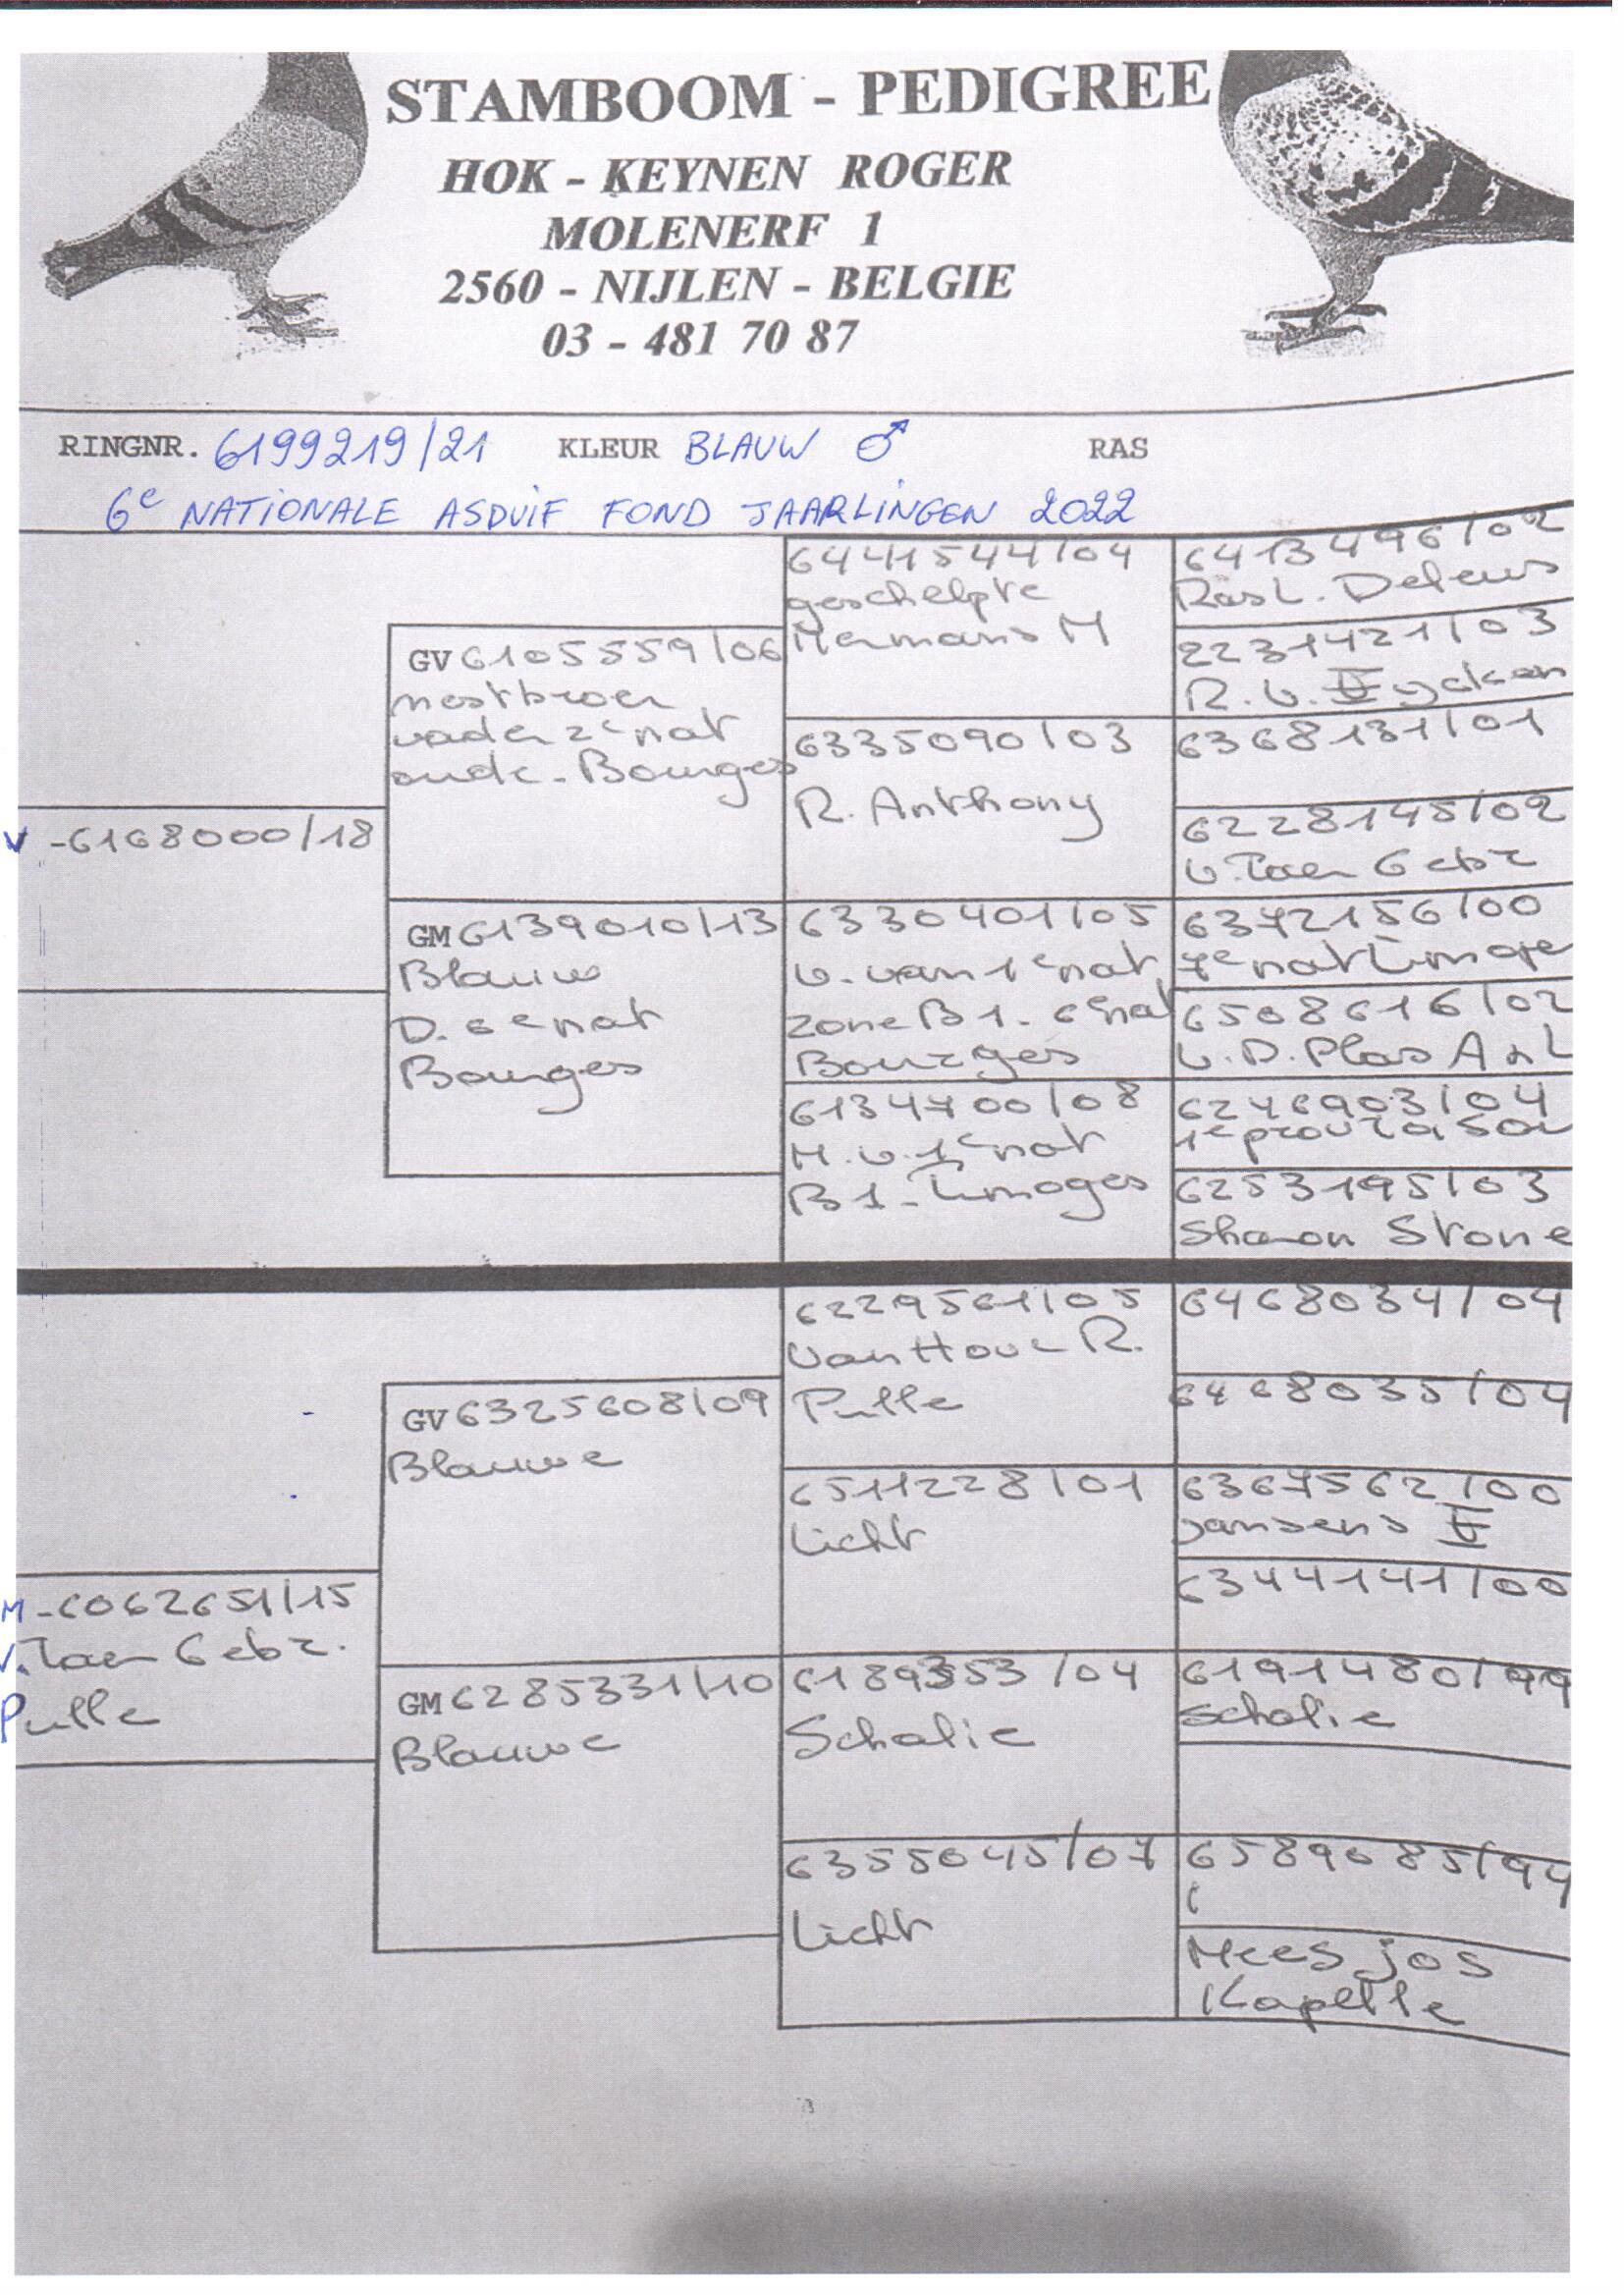 STAMBOOM - PEDIGREE
HOK - KEYNEN ROGER
MOLENERF 1
2560 - NIJLEN - BELGIE
03 - 481 70 87
RINGNR. 6199219/21 KLEUR BLAUW ♂ RAS
6e NATIONALE ASDUIF FOND JAARLINGEN 2022
V -6168000/18
GV 6105559/06
nestbroer
vader 2e nat
oude - Bourges
GM 6139010/13
Blauw
D. 6e nat
Bourges
6441544/04
geschelpte
Hermans M
6335090/03
R. Anthony
6330401/05
v. van 1e nat
zone B1 - 6e nat
Bourges
6134700/08
M. v. 1e nat
B1 - Limoges
6413496/02
Ras L. Deleus
2231421/03
R. v. Eycken
6368131/01
6228145/02
v. Toen Gebr
6372156/00
7e nat Limoge
6508616/02
v. D. Plas A
6246903/04
1e prov
6253195/03
Sharon Stone
M -6062651/15
Gebr.
Pulle
GV 6325608/09
Blauwe
GM 6285331/10
Blauwe
6229561/05
Van Hove R.
Pulle
6511228/01
Licht
6189353/04
Schalie
6355045/07
Licht
6468034/04
6468035/04
6367562/00
Jansens
6344141/00
6191480/99
Schalie
6589085/94
Mees Jos
Kapelle